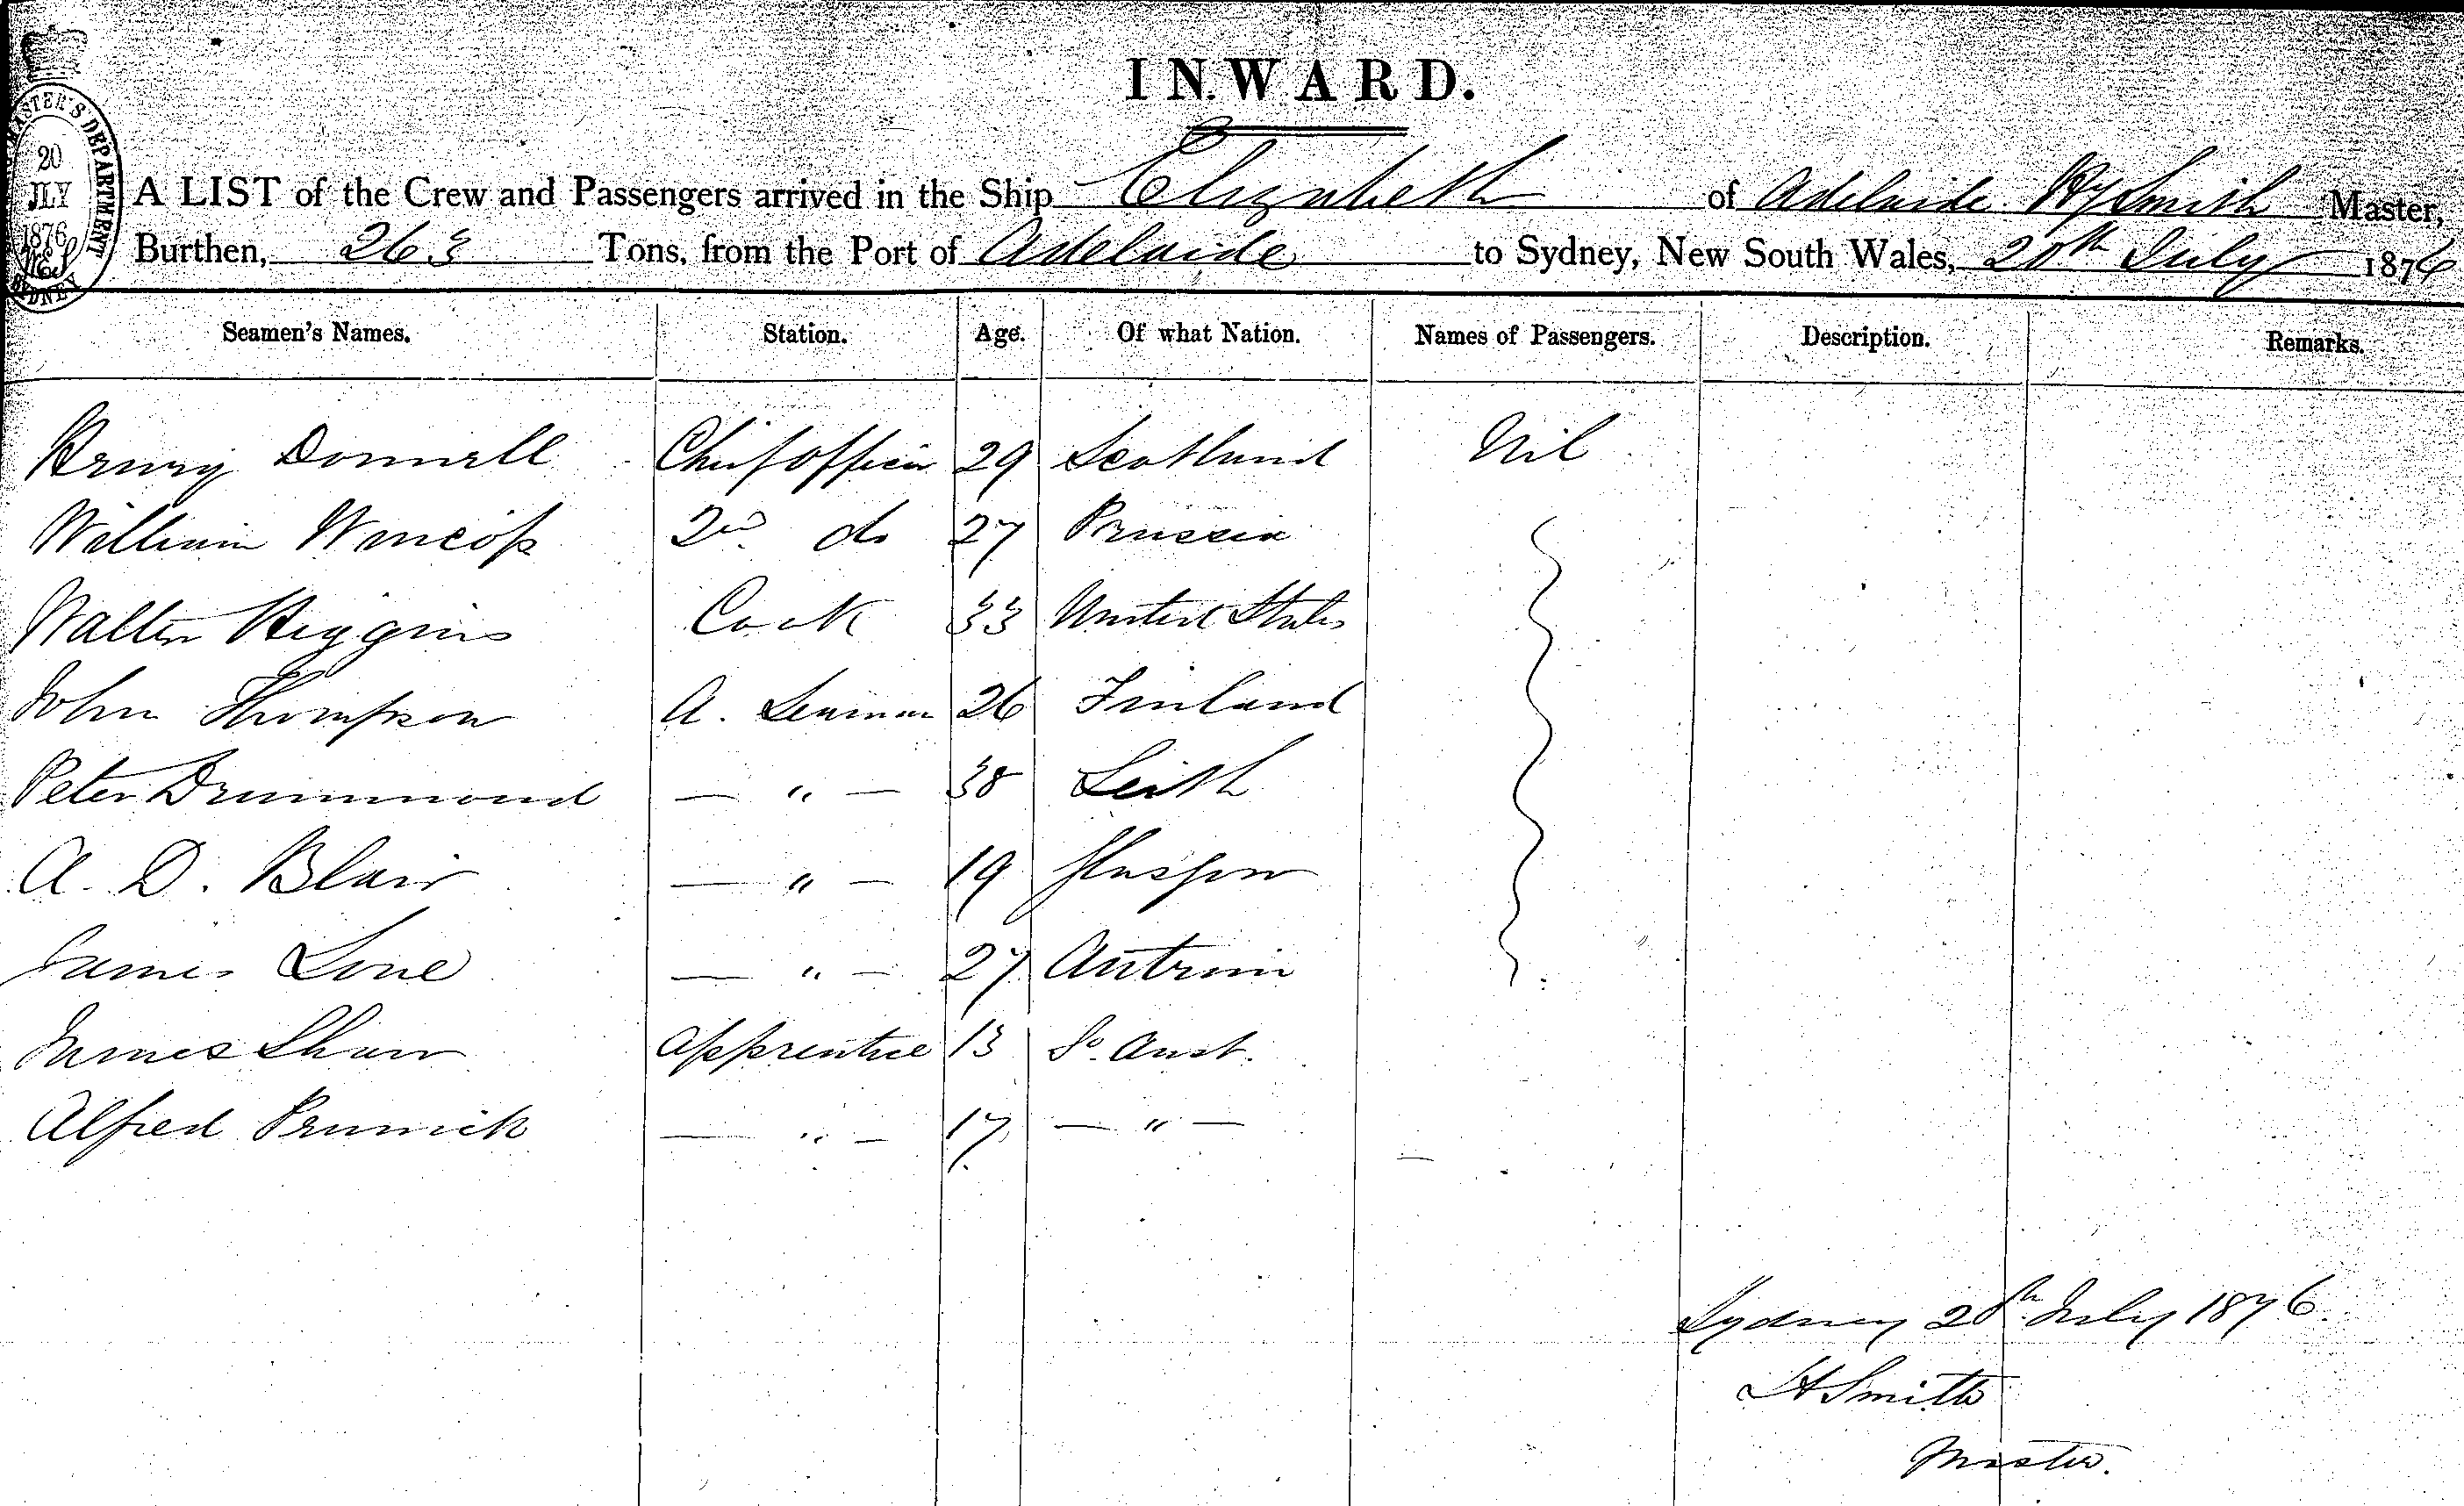 INWARD.
20
JLY
1876
SYDNEY
A LIST of the Crew and Passengers arrived in the Ship Elizabeth of Adelaide Hy Smith Master,
Burthen, 263 Tons, from the Port of Adelaide to Sydney, New South Wales, 20th July 1876
Seamen's Names. Station. Age. Of what Nation. Names of Passengers. Description. Remarks.
Henry Donnell Chief Officer 29 Scotland Nil
William Wincop 2nd do 27 Prussia
Walter Higgins Cook 33 United States
John Thompson A. Seaman 26 Finland
Peter Drummond — " — 38 Leith
A. D. Blair — " — 19 Glasgow
James Lone — " — 27 Antrim
James Shaw Apprentice 13 So. Aust.
Alfred — " — 17 — " —
Sydney 20th July 1876
H Smith
Master.